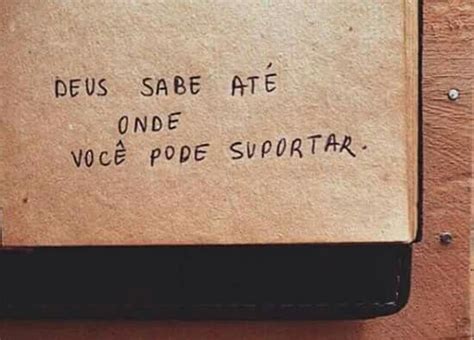 DEUS SABE ATÉ
ONDE
VOCÊ PODE SUPORTAR.